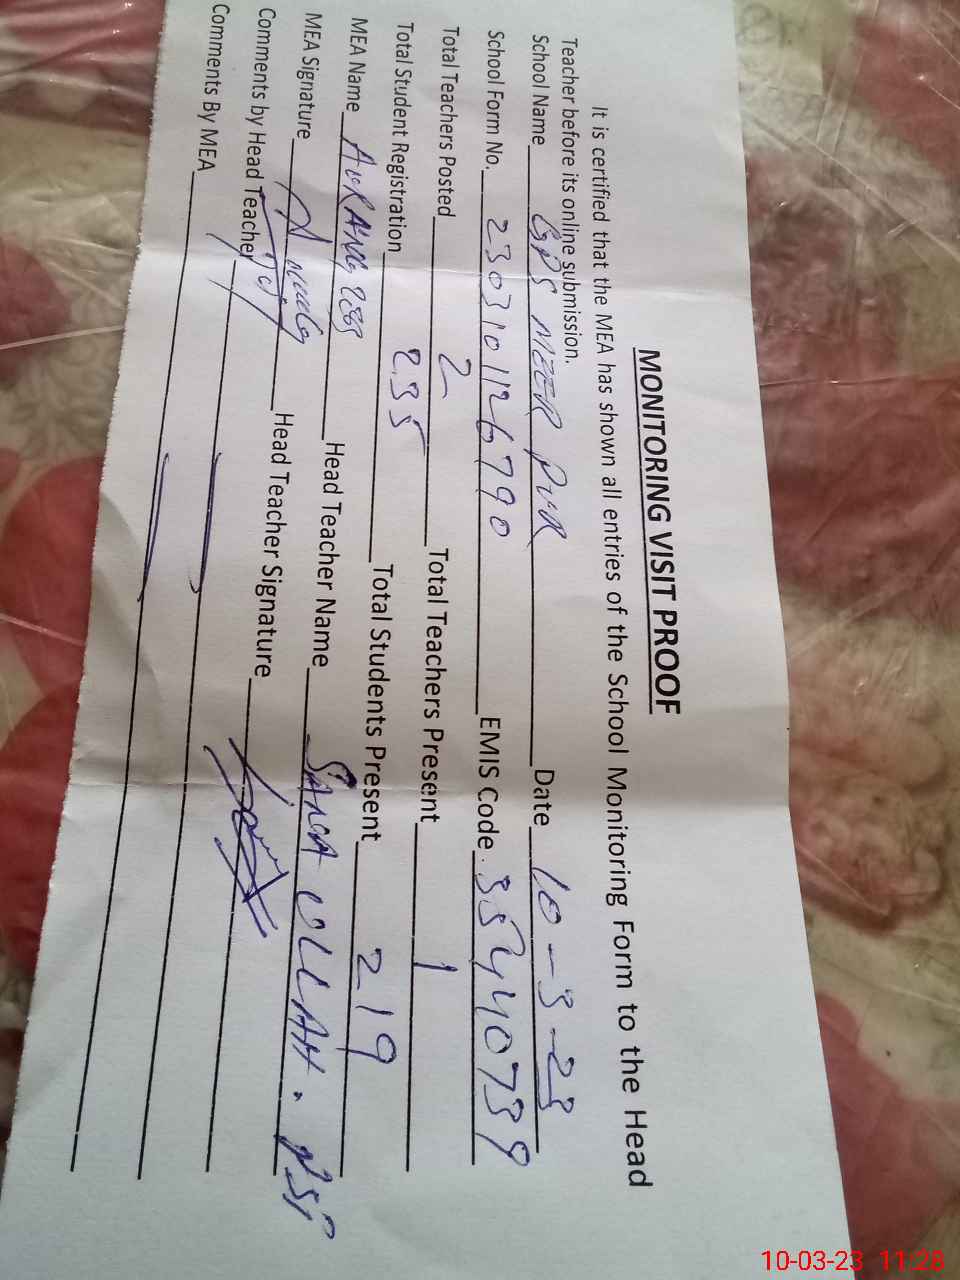 MONITORING VISIT PROOF
It is certified that the MEA has shown all entries of the School Monitoring Form to the Head
Teacher before its online submission.
School Name GPS MEER PUR Date 10-3-23
School Form No. 230310126790 EMIS Code 35440739
Total Teachers Posted 2 Total Teachers Present 1
Total Student Registration 235 Total Students Present 219
MEA Name AURANG ZEB Head Teacher Name SANA ULLAH. PST
MEA Signature Head Teacher Signature
Comments by Head Teacher
Comments By MEA
10-03-23 11:28